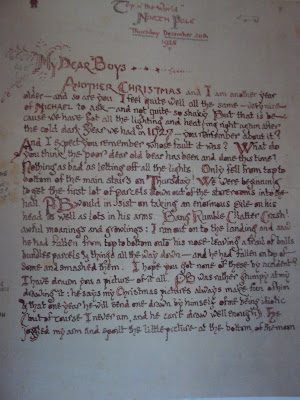 Top o' the World
NORTH POLE
Thursday December 20th
1928
My Dear Boys
ANOTHER CHRISTMAS and I am another year
older — and so are you. I feel quite well all the same — very nice
of MICHAEL to ask — and not quite so shaky. But that is be-
cause we have got all the lighting and heating right again after
the cold dark year we had in 1927 — you remember about it?
And I expect you remember whose fault it was? What do
you think the poor dear old bear has been and done this time?
Nothing as bad as letting off all the lights. Only fell from top to
bottom of the main stairs on Thursday! We were beginning
to get the first lot of parcels down out of the storerooms into the
hall. P.B. would insist on taking an enormous pile on his
head as well as lots in his arms. Bang Rumble Clatter Crash!
awful moanings and growlings: I ran out on to the landing and saw
he had fallen from top to bottom on to his nose leaving a trail of balls
bundles parcels & things all the way down — and he had fallen on top of
some and smashed them. I hope you got none of these by accident?
I have drawn you a picture of it all. P.B. was rather grumpy at my
drawing it: he says my Christmas pictures always make fun of him
& that one year he will send one drawn by himself of me being idiotic
(but of course I never am, and he can't draw well enough). He
joggled my arm and spoilt the little picture at the bottom, of the moon